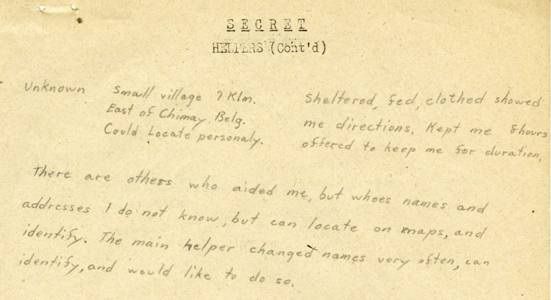 SECRET
HELPERS (Cont'd)
Unknown Small village 7 Klm. Sheltered, fed, clothed showed
East of Chimay Belg. me directions. Kept me 8 hours
Could Locate personaly. offered to keep me for duration.
There are others who aided me, but whoes names and
addresses I do not know, but can locate on maps, and
identify. The main helper changed names very often, can
identify, and would like to do so.